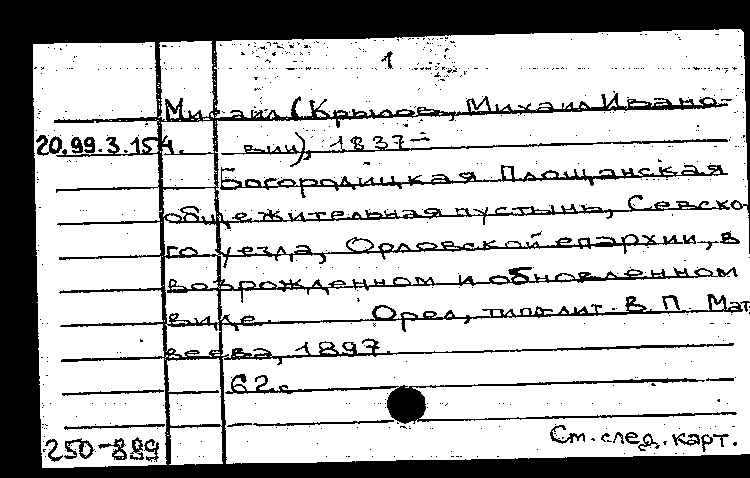 1
Мисаил (Крылов, Михаил Ивано-
20.99.3.154. вич), 1837-
Богородицкая Площанская
общежительная пустынь, Севско-
го уезда, Орловской епархии, в
возрожденном и обновленном
виде. Орел, типо-лит. В. П. Мат
веева, 1897.
62 с
250-889 См. след. карт.